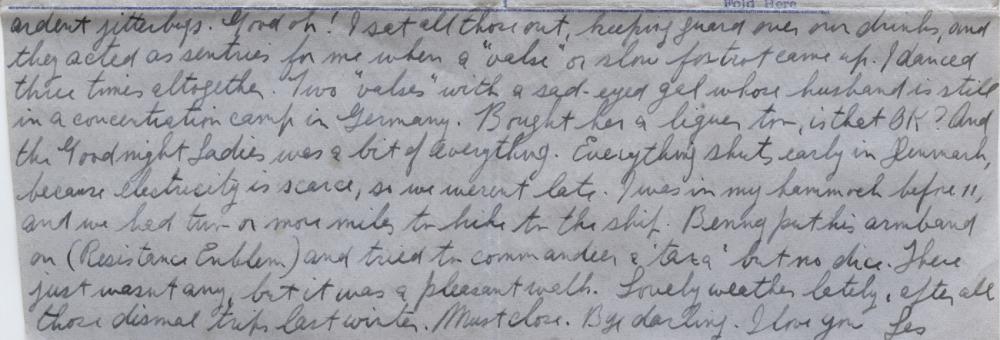 Fold Here
ardent jitterbugs. Good oh! I sat all those out, keeping guard over our drinks, and
they acted as sentries for me when a "valse" or slow foxtrot came up. I danced
three times altogether. Two "valses" with a sad-eyed gal whose husband is still
in a concertration camp in Germany. Bought her a liquer too, is that OK? And
the Goodnight Ladies was a bit of everything. Everything shuts early in Denmark,
because electricity is scarce, so we weren't late. I was in my hammock before 11,
and we had two or more miles to hike to the ship. Benng put his armband
on (Resistance Emblem) and tried to commandeer a 'taxa' but no dice. There
just wasn't any, but it was a pleasant walk. Lovely weather lately, after all
those dismal trips last winter. Must close. Bye darling. I love you Les